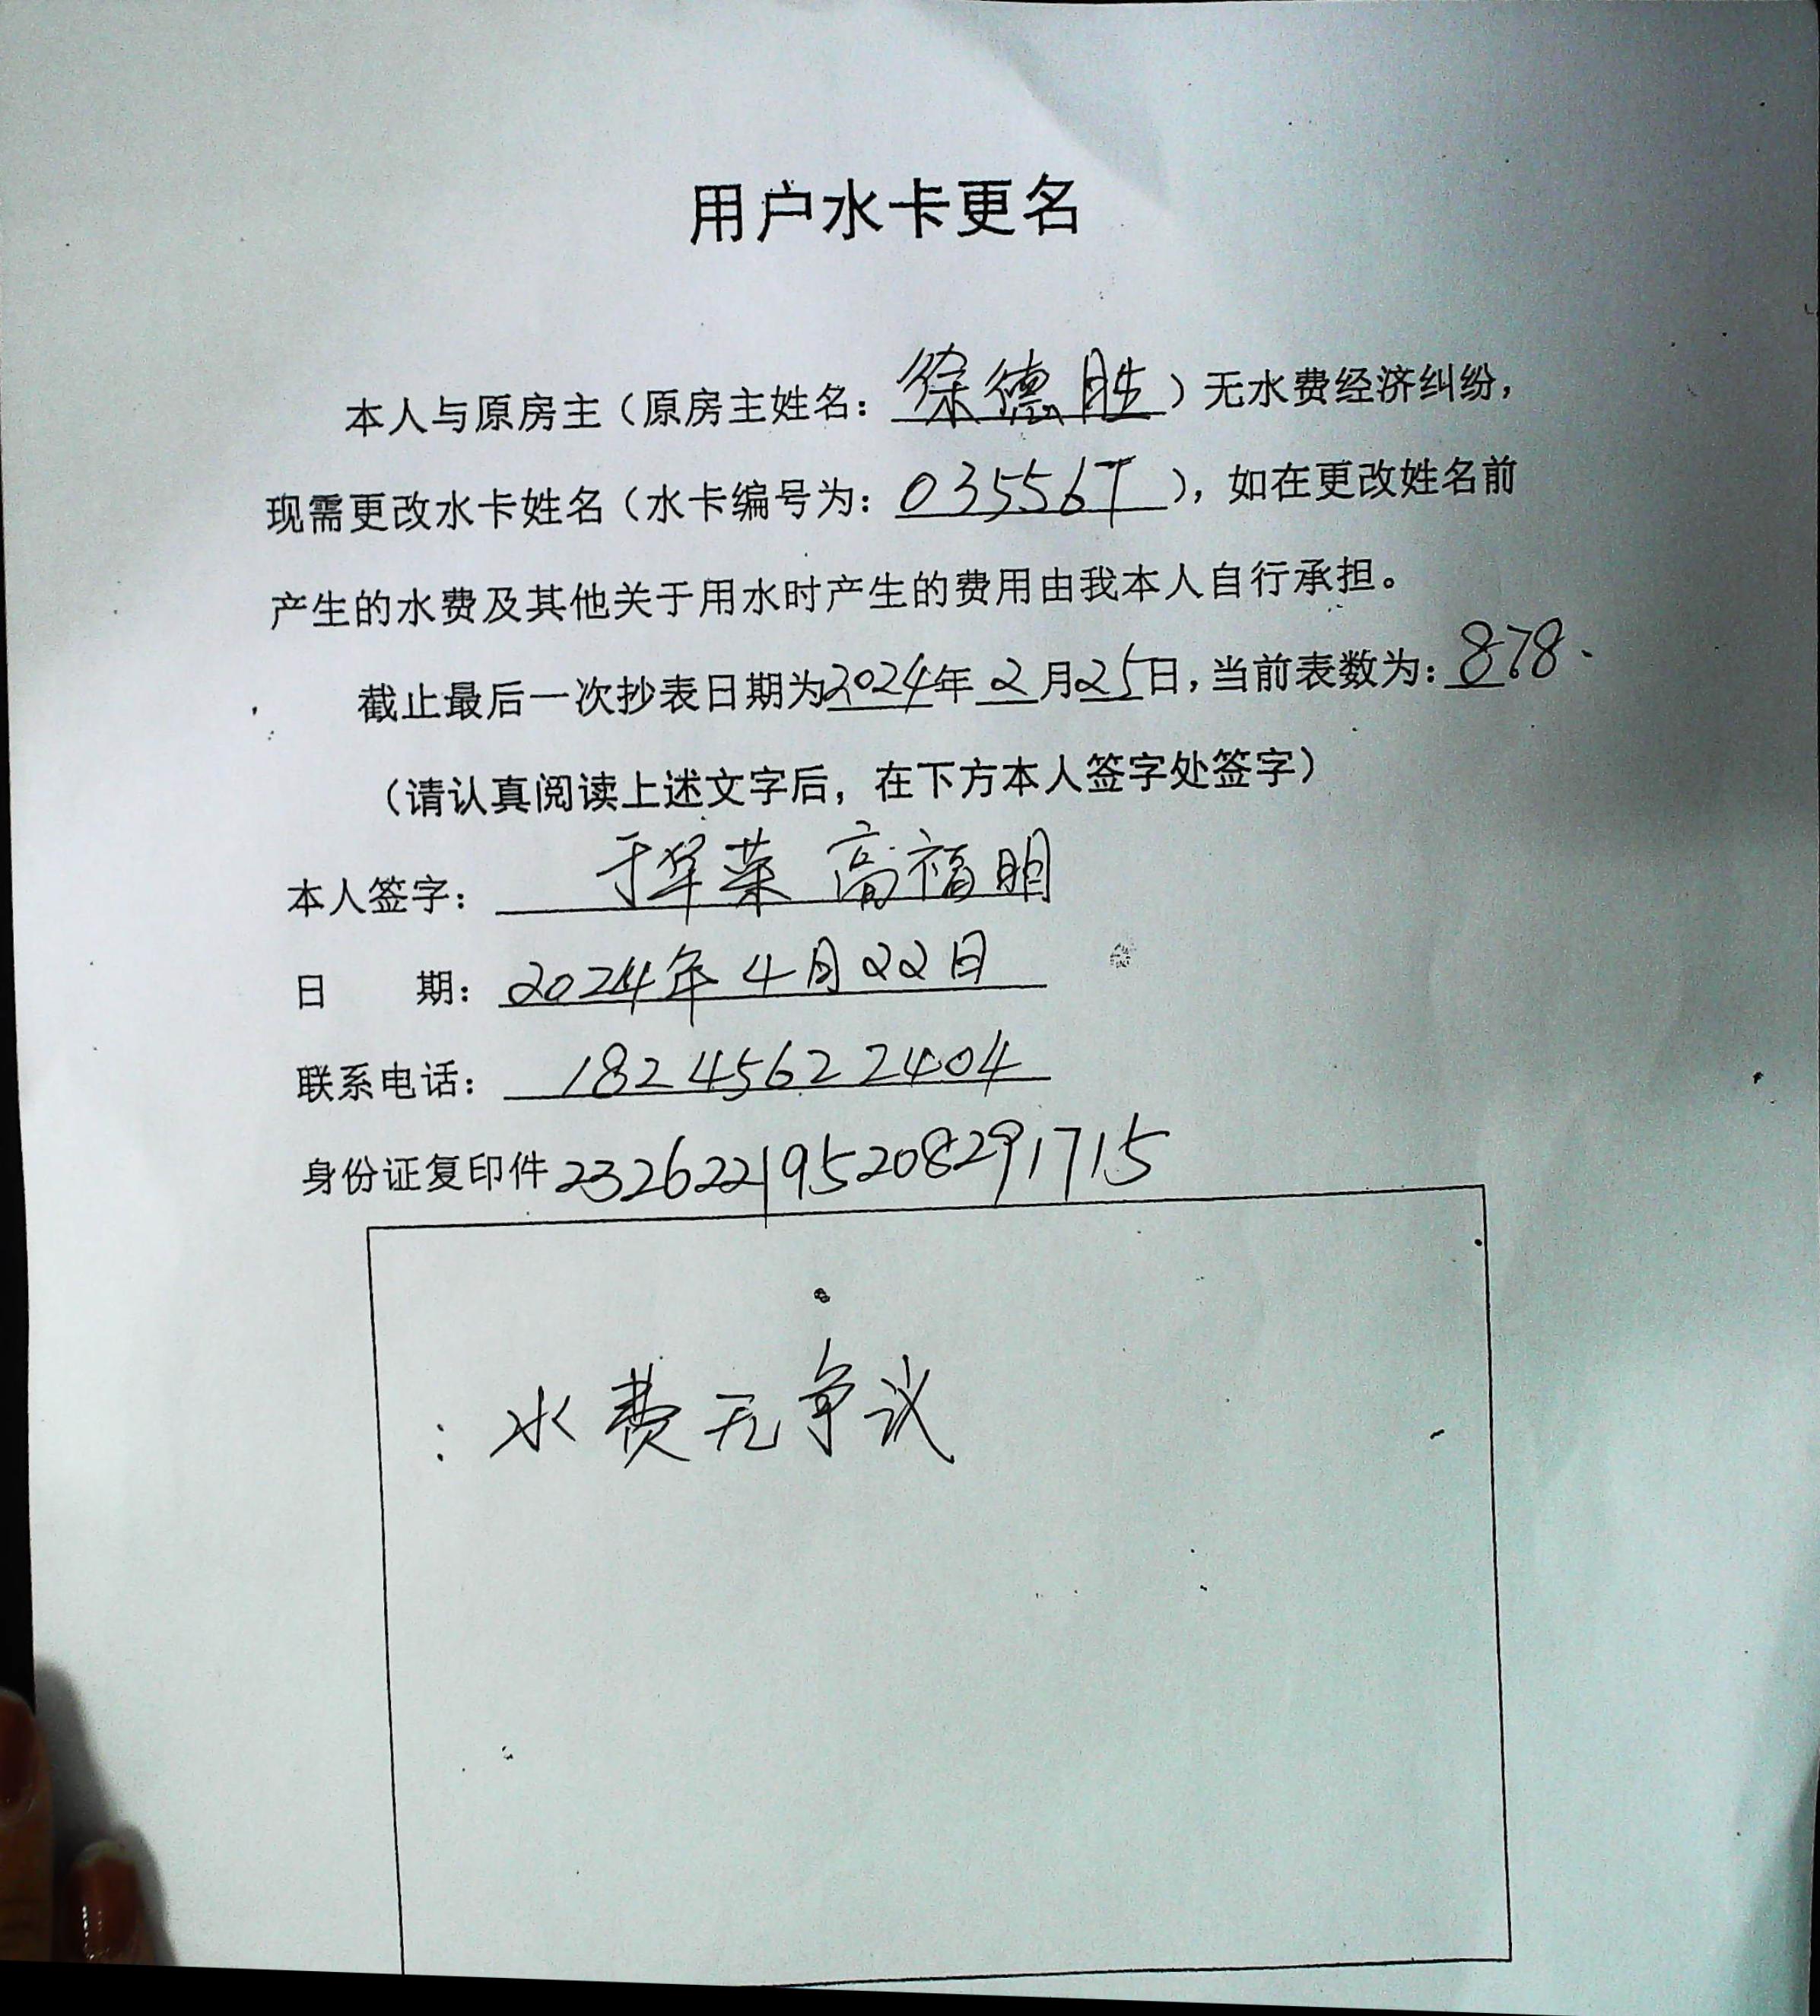 用户水卡更名
本人与原房主（原房主姓名：徐德胜）无水费经济纠纷，
现需更改水卡姓名（水卡编号为：03556T），如在更改姓名前
产生的水费及其他关于用水时产生的费用由我本人自行承担。
截止最后一次抄表日期为2024年2月25日，当前表数为：878.
（请认真阅读上述文字后，在下方本人签字处签字）
本人签字：于华荣 高福明
日 期：2024年4月22日
联系电话：18245622404
身份证复印件232622195208291715
：水费无争议